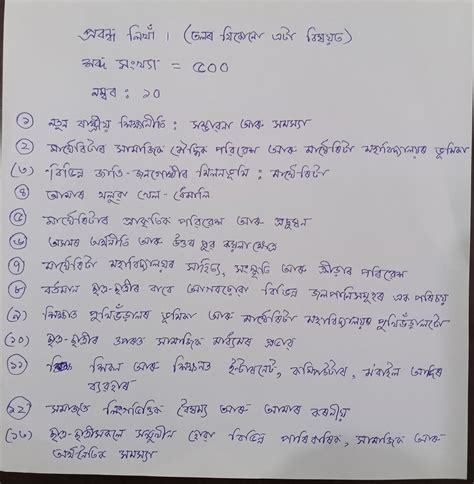 প্ৰবন্ধ লিখাঁ । (তলৰ যিকোনো এটা বিষয়ত)
শব্দ সংখ্যা = ৫০০
নম্বৰ : ১০
(১) নতুন ৰাষ্ট্ৰীয় শিক্ষানীতি : সম্ভাৱনা আৰু সমস্যা
(২) মাৰ্ঘেৰিটাৰ সামাজিক বৌদ্ধিক পৰিৱেশ আৰু মাৰ্ঘেৰিটা মহাবিদ্যালয়ৰ ভূমিকা
(৩) বিভিন্ন জাতি-জনগোষ্ঠীৰ মিলনভূমি : মাৰ্ঘেৰিটা
(৪) আমাৰ থলুৱা খেল-ধেমালি
(৫) মাৰ্ঘেৰিটাৰ প্ৰাকৃতিক পৰিৱেশ আৰু প্ৰদূষণ
(৬) অসমৰ অৰ্থনীতি আৰু উত্তৰ পূব কয়লাক্ষেত্ৰ
(৭) মাৰ্ঘেৰিটা মহাবিদ্যালয়ৰ সাহিত্য, সংস্কৃতি আৰু ক্ৰীড়াৰ পৰিৱেশ
(৮) বৰ্তমান ছাত্ৰ-ছাত্ৰীৰ বাবে আগবঢ়োৱা বিভিন্ন জলপানিসমূহৰ এক পৰিচয়
(৯) শিক্ষাত পুথিভঁৰালৰ ভূমিকা আৰু মাৰ্ঘেৰিটা মহাবিদ্যালয়ৰ পুথিভঁৰালটো
(১০) ছাত্ৰ-ছাত্ৰীৰ ওপৰত সামাজিক মাধ্যমৰ প্ৰভাৱ
(১১) শিক্ষণ আৰু শিক্ষণত ইণ্টাৰনেট, কম্পিউটাৰ, মবাইল আদিৰ
ব্যৱহাৰ
(১২) সমাজত লিংগভিত্তিক বৈষম্য আৰু আমাৰ কৰণীয়
(১৩) ছাত্ৰ-ছাত্ৰীসকলে সন্মুখীন হোৱা বিভিন্ন পাৰিবাৰিক, সামাজিক আৰু
অৰ্থনৈতিক সমস্যা